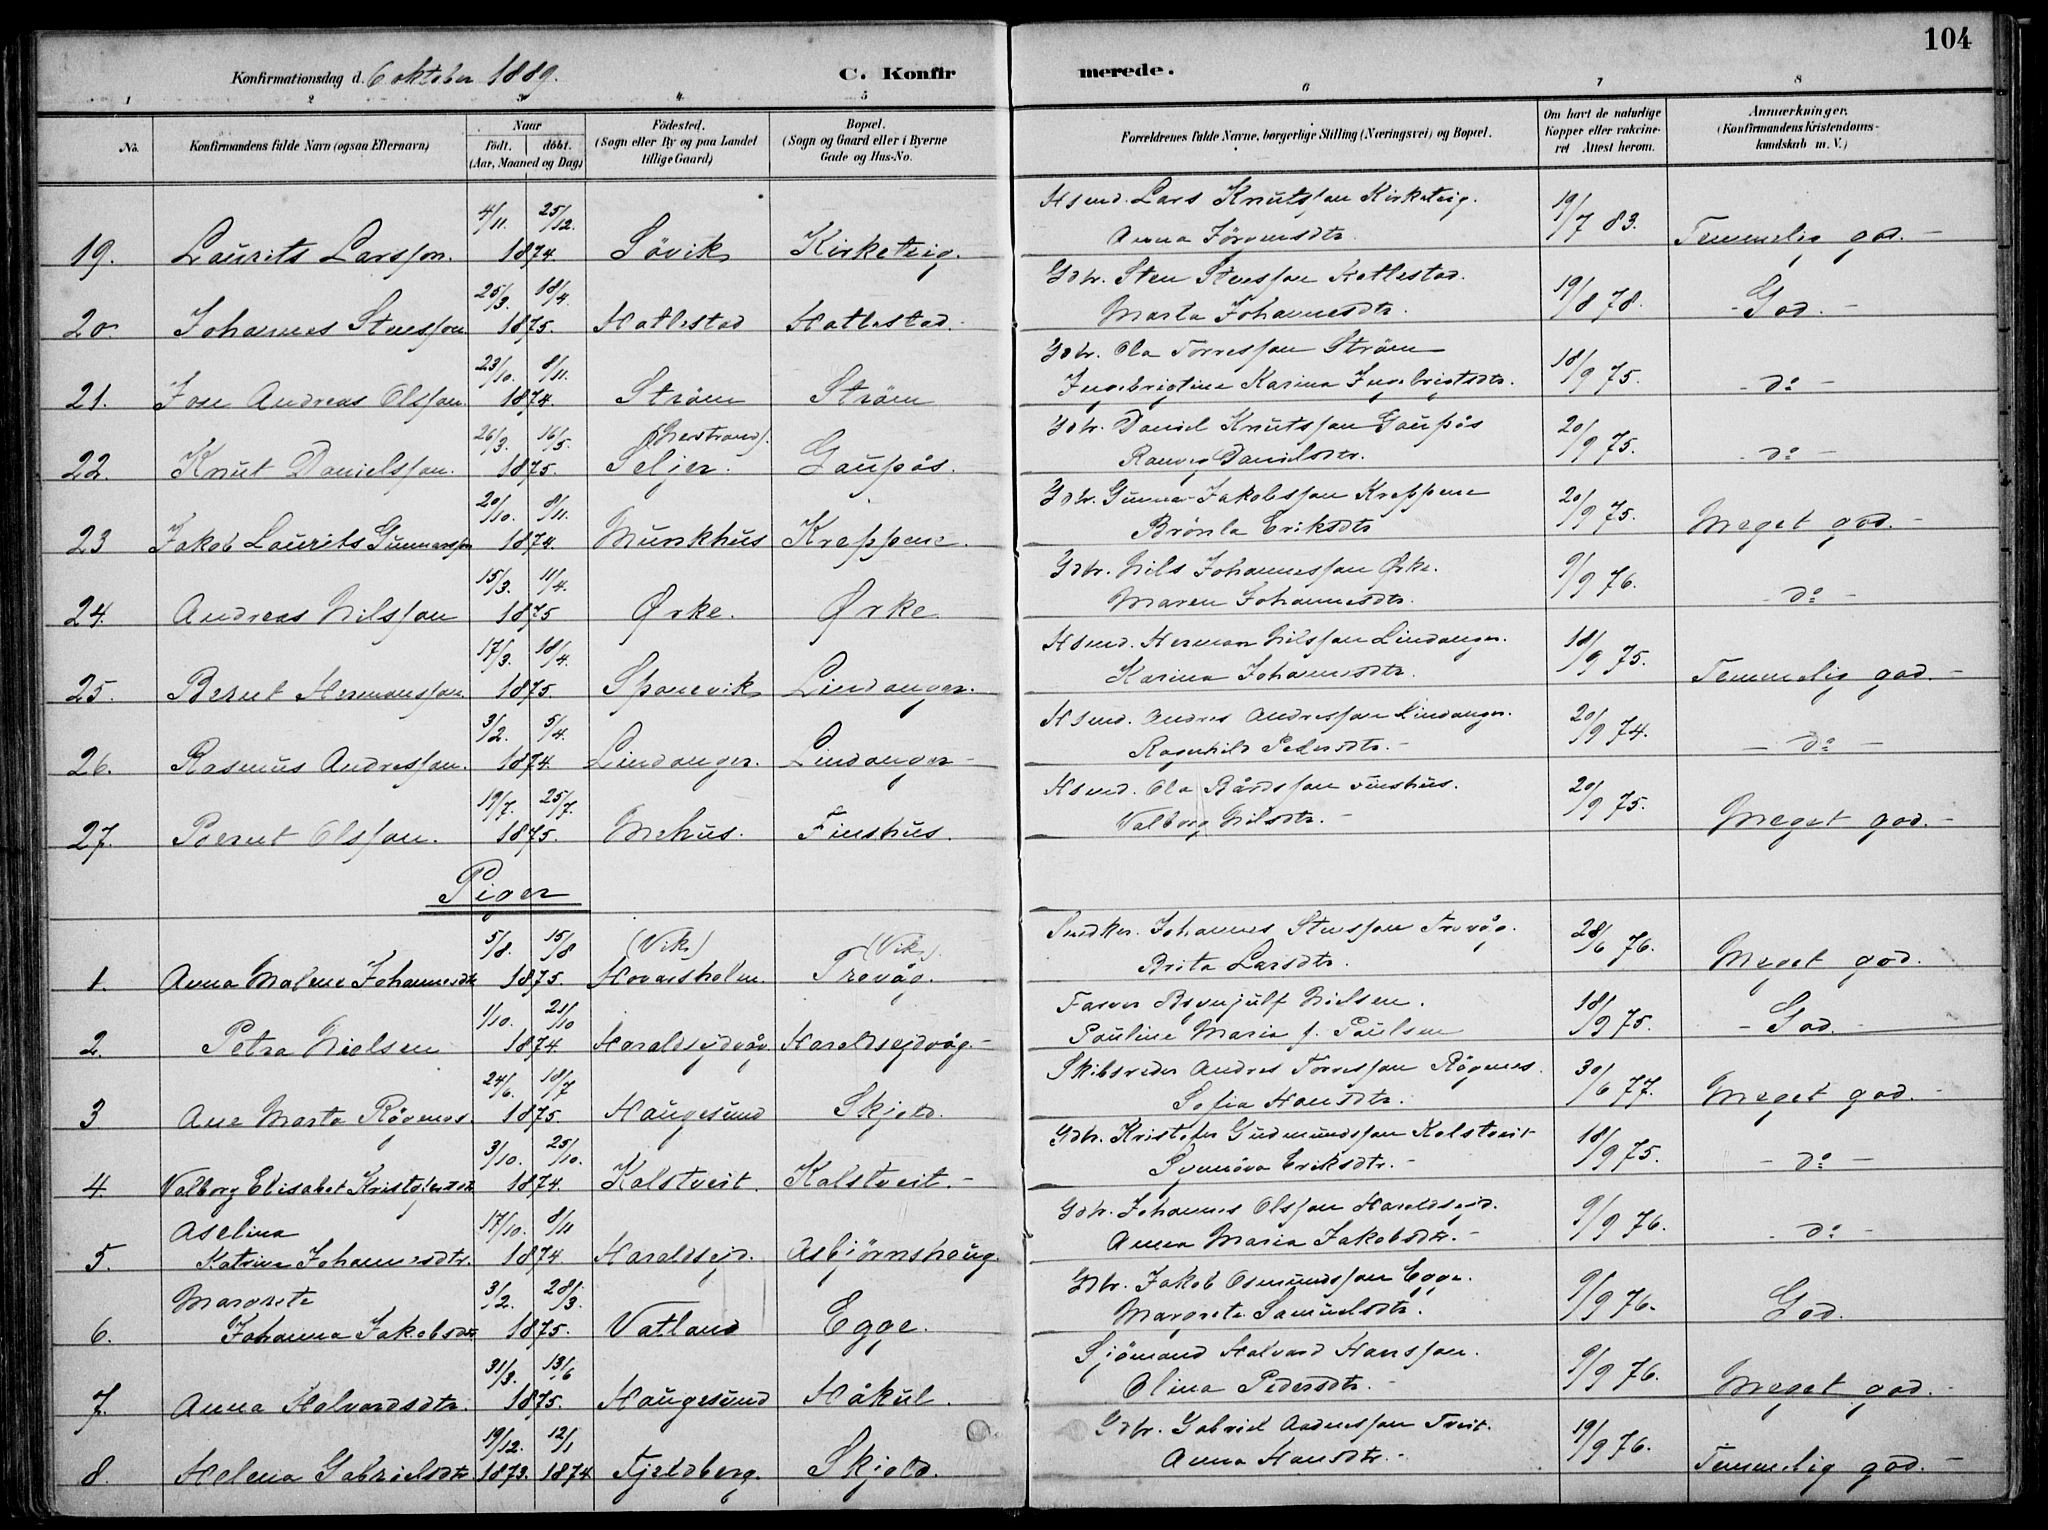 104
Konfirmationsdag d. 6 oktober 1889.
C. Konfirmerede.
1 2 3 4 5 6 7 8
No.
Konfirmandens fulde Navn (ogsaa Efternavn)
Naar
født. døbt.
(Aar, Maaned og Dag)
Fødested.
(Sogn eller By og paa Landet
tillige Gaard)
Bopæl.
(Sogn og Gaard eller i Byerne
Gade og Hus-No.
Forældrenes fulde Navne, borgerlige Stilling (Næringsvei) og Bopæl.
Om havt de naturlige
Kopper eller vakcine-
ret Attest herom.
Anmærkninger.
(Konfirmandens Kristendoms-
kundskab m. V.)
4/11. 25/12. Hsmd. Lars Knutsson Kirketeig. 19/7 83.
19. Laurits Larsson. 1874. Søvik Kirketeig. Anna Jørgensdtr. Temmelig god.
25/3. 18/4. Gdbr. Sten Stensson Hatlestad. 19/8 78.
20. Johannes Stensson 1875. Hatlestad Hatlestad. Marta Johannesdtr. God.
23/10. 8/11. Gdbr. Ola Torresson Strøm 18/9 75.
21. Jone Andreas Olsson. 1874. Strøm Strøm Ingebrigtine Karina Ingebrigtsdtr. do
26/3. 16/5. (Nerstrand). Gdbr. Daniel Knutsson Gaupås 20/9 75.
22. Knut Danielsson. 1875. Seljer. Gaupås. Ranveg Danielsdtr. do
20/10. 8/11. Gdbr. Gunnar Jakobsson Kreppene 20/9 75.
23 Jakob Laurits Gunnarsson 1874. Munkhus Kreppene. Brønla Eriksdtr Meget god.
15/3. 11/4. Gdbr. Nils Johannesson Ørke. 9/9 76.
24. Andreas Nilsson 1875 Ørke. Ørke. Maren Johannesdtr. do
17/3. 18/4. Hsmd. Herman Nilsson Lindanger. 18/9 75.
25. Bernt Hermansson 1875. Skånevik Lindanger. Karina Johannesdtr. Temmelig god.
3/2. 5/4. Hsmd. Andres Andresson Lindanger. 20/9 74.
26. Rasmus Andresson. 1874. Lindanger. Lindanger Ragnhild Pedersdtr. do
19/7. 25/7. Hsmd. Ola Bårdsson Finshus. 20/9 75.
27. Bernt Olsson. 1875. Mehus. Finshus. Valborg Nilsdtr. Meget god.
Piger
5/8. 15/8 (Vik) (Vik). Snedker. Johannes Stensson Trovåg. 28/6 76.
1. Anna Malene Johannesdtr 1875. Hovarsholm. Trovåg. Brita Larsdtr. Meget god.
1/10. 21/10 Farver Brynjulf Nielsen. 18/9 75.
2. Petra Nielsen 1874. Haraldsejdvåg Haraldsejdvåg. Pauline Maria f. Paulsen God.
24/6. 18/7 Skibsreder Andres Torresson Røgenes. 30/6 77.
3 Ane Marta Røgenes. 1875. Haugesund Skjold. Sofia Hansdtr. Meget god.
3/10. 25/10. Gdbr. Kristofer Gudmundsson Kalstveit 18/9 75.
4 Valborg Elisabet Kristofersdtr 1874. Kalstveit. Kalstveit. Synnøva Eriksdtr. do
Aselina 17/10. 8/11 Gdbr. Johannes Olsson Haraldsejd. 9/9 76.
5. Katrine Johannesdtr. 1874 Haraldsejd. Asbjørnshaug Anna Maria Jakobsdtr. do
Margreta 3/2. 28/3. Gdbr. Jakob Osmundsson Egge. 9/9 76.
6. Johanna Jakobsdtr 1875. Vatland Egge. Margreta Samuelsdtr. God.
31/3. 13/6 Sjømand Halvard Hansson. 9/9 76.
7. Anna Halvardsdtr. 1875. Haugesund Håkul. Olina Pedersdtr. Meget god.
19/12. 12/1 Gdbr. Gabriel Andresson Tveit. 19/9 76.
8. Helena Gabrielsdtr 1873. 1874 Fjeldberg. Skjold. Anna Hansdtr. Temmelig god.